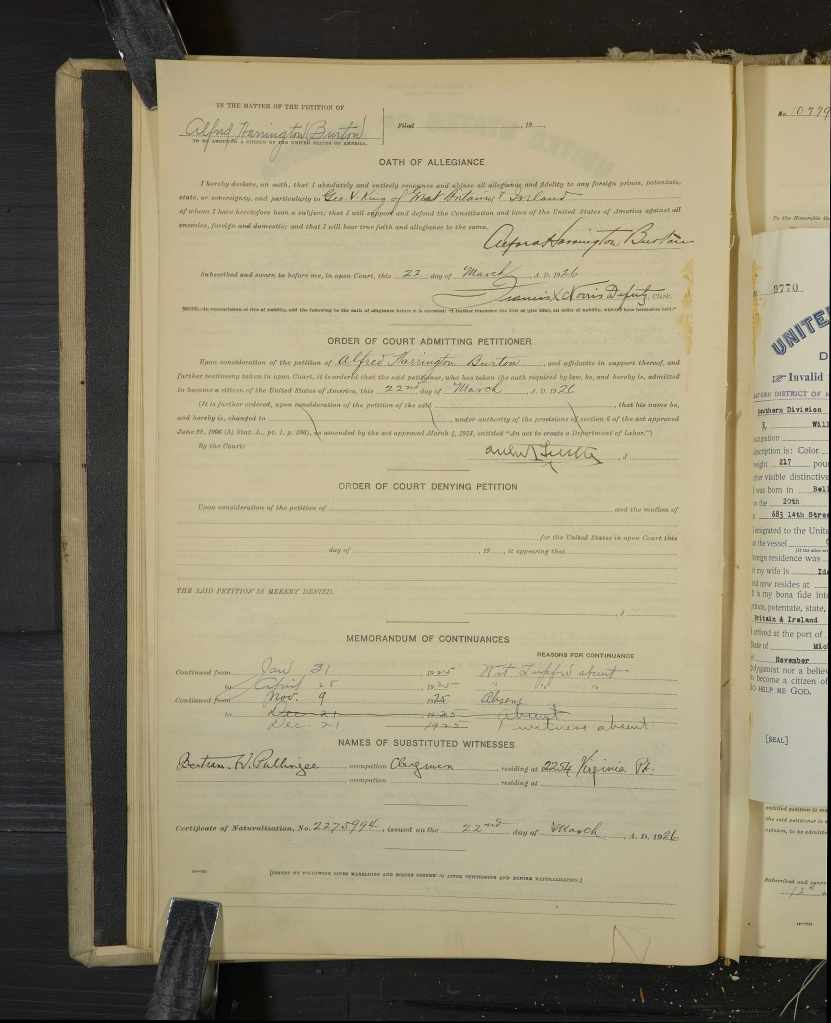 IN THE MATTER OF THE PETITION OF
Alfred Harrington Burton
TO BE ADMITTED A CITIZEN OF THE UNITED STATES OF AMERICA.
Filed , 19
OATH OF ALLEGIANCE
I hereby declare, on oath, that I absolutely and entirely renounce and abjure all allegiance and fidelity to any foreign prince, potentate,
state, or sovereignty, and particularly to Geo. V. King of Great Britain & Ireland
of whom I have heretofore been a subject; that I will support and defend the Constitution and laws of the United States of America against all
enemies, foreign and domestic; and that I will bear true faith and allegiance to the same.
Alfred Harrington Burton
Subscribed and sworn to before me, in open Court, this 22 day of March A. D. 1926
Francis X Norris Deputy, Clerk.
NOTE.—In renunciation of title of nobility, add the following to the oath of allegiance before it is executed: "I further renounce the title of (give title), an order of nobility, which I have heretofore held."
ORDER OF COURT ADMITTING PETITIONER
Upon consideration of the petition of Alfred Harrington Burton, and affidavits in support thereof, and
further testimony taken in open Court, it is ordered that the said petitioner, who has taken the oath required by law, be, and hereby is, admitted
to become a citizen of the United States of America, this 22nd day of March A. D. 1926
(It is further ordered, upon consideration of the petition of the said , that his name be,
and hereby is, changed to , under authority of the provisions of section 6 of the act approved
June 29, 1906 (34 Stat. L., pt. 1, p. 596), as amended by the act approved March 4, 1913, entitled "An act to create a Department of Labor.")
By the Court:
, J
ORDER OF COURT DENYING PETITION
Upon consideration of the petition of and the motion of
for the United States in open Court this
day of , 19 , it appearing that
THE SAID PETITION IS HEREBY DENIED.
, J
MEMORANDUM OF CONTINUANCES
REASONS FOR CONTINUANCE
Continued from Jan 31 1925 absent
to April 25 1925 " " "
Continued from Nov. 9 1925 Absent
to Dec 21 1925 absent
Dec. 21 1925 1 witness absent
NAMES OF SUBSTITUTED WITNESSES
Bertram W. Pullinger occupation Clergyman, residing at 2254 Virginia Pk.
occupation , residing at
Certificate of Naturalization, No. 2275994, issued on the 22nd day of March, A. D. 1926
No. 10779
To the Honorable
9770
UNITED
D
Invalid
Southern Division
I, Will
occupation
description is: Color
weight 217 pou
other visible distinctive
I was born in Bel
on the 20th
683 14th Stree
emigrated to the Unite
on the vessel
foreign residence was
my wife is Id
and now resides at
It is my bona fide inte
prince, potentate, state,
Britain & Ireland
I arrived at the port of
State of Mich
November
polygamist nor a belie
to become a citizen of
SO HELP ME GOD.
[SEAL]
entitled petition is ma
the said petitioner is
Subscribed and swor
12th